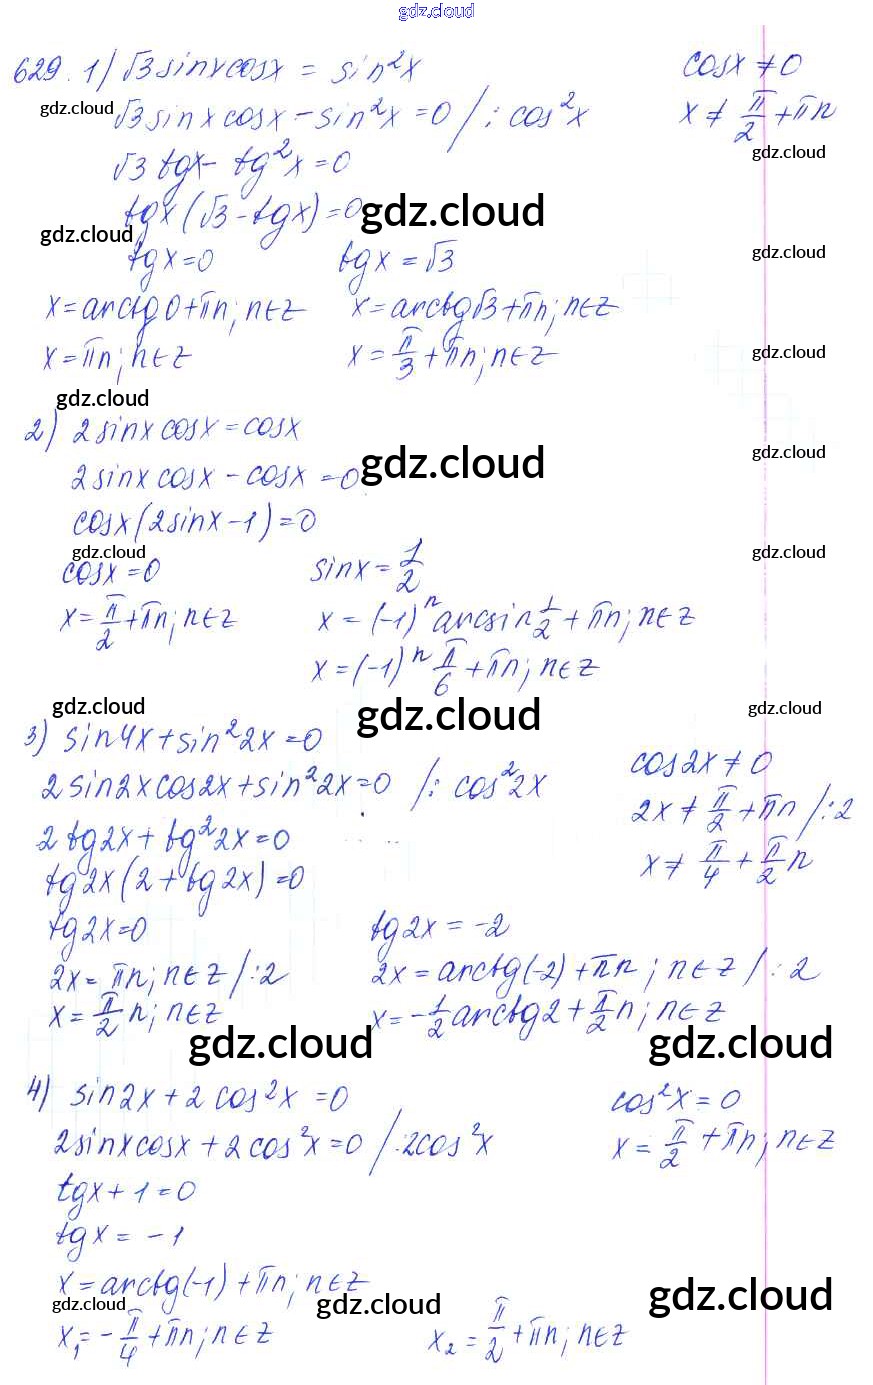 gdz.cloud
629. 1) √3 sinx cosx = sin²x cosx ≠ 0
gdz.cloud √3 sinx cosx - sin²x = 0 /: cos²x x ≠ π/2 + πn
gdz.cloud
√3 tgx - tg²x = 0
tgx (√3 - tgx) = 0 gdz.cloud
gdz.cloud
tgx = 0 tgx = √3 gdz.cloud
x = arctg 0 + πn; n∈Z x = arctg√3 + πn; n∈Z
x = πn; n∈Z x = π/3 + πn; n∈Z gdz.cloud
gdz.cloud
2) 2 sinx cosx = cosx
gdz.cloud
2 sinx cosx - cosx = 0 gdz.cloud
cosx (2sinx - 1) = 0
gdz.cloud gdz.cloud
cosx = 0 sinx = 1/2
x = π/2 + πn; n∈Z x = (-1)ⁿ arcsin 1/2 + πn; n∈Z
x = (-1)ⁿ π/6 + πn; n∈Z
gdz.cloud gdz.cloud gdz.cloud
3) sin4x + sin²2x = 0
cos2x ≠ 0
2 sin2x cos2x + sin²2x = 0 /: cos²2x
2x ≠ π/2 + πn /:2
2 tg2x + tg²2x = 0
x ≠ π/4 + π/2 n
tg2x (2 + tg2x) = 0
tg2x = 0 tg2x = -2
2x = πn; n∈Z /:2 2x = arctg(-2) + πn; n∈Z /:2
x = π/2 n; n∈Z x = -1/2 arctg2 + π/2 n; n∈Z
gdz.cloud gdz.cloud
4) sin2x + 2 cos²x = 0 cos²x = 0
2sinx cosx + 2 cos²x = 0 /:2cos²x x = π/2 + πn; n∈Z
tgx + 1 = 0
tgx = -1
x = arctg(-1) + πn; n∈Z
gdz.cloud gdz.cloud gdz.cloud
x₁ = -π/4 + πn; n∈Z x₂ = π/2 + πn; n∈Z